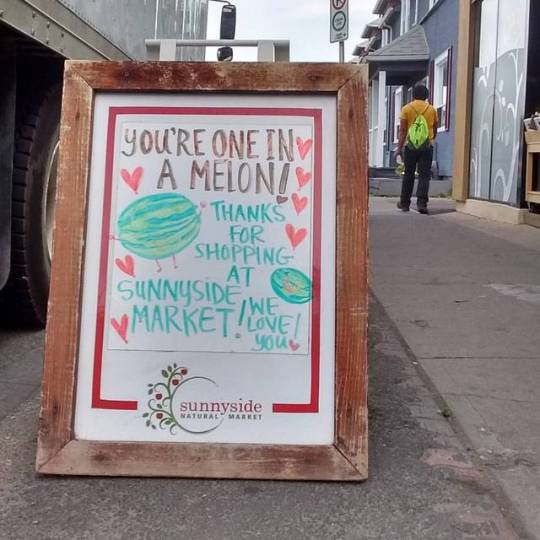 YOU'RE ONE IN
A MELON!
THANKS
FOR
SHOPPING
AT
SUNNYSIDE
MARKET!
WE
LOVE!
YOU
sunnyside
NATURAL MARKET